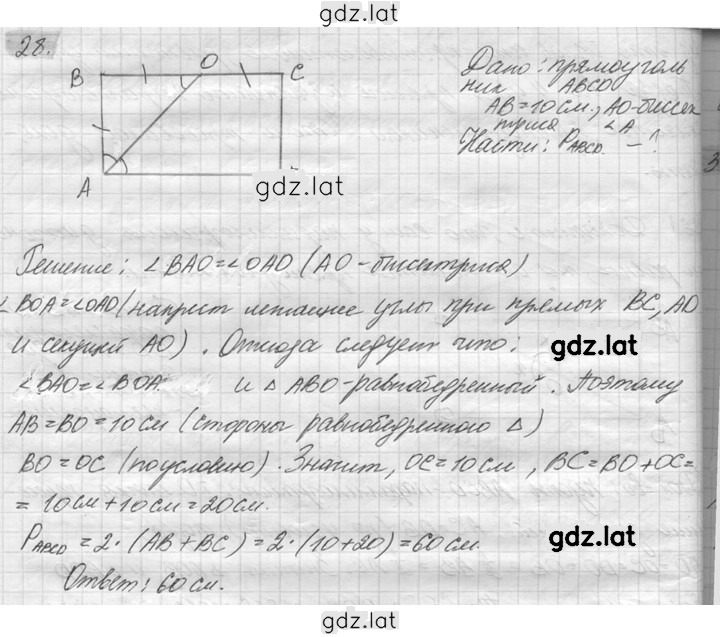 gdz.lat
28.
B O C
A
Дано: прямоуголь
ник ABCD
AB=10см., AO-биссек
триса ∠A
Найти: P ABCD. - ?
gdz.lat
3
Решение: ∠BAO=∠OAD (AO-биссектриса)
∠BOA=∠OAD (накрест лежащие углы при прямых BC, AD
и секущей AO). Отсюда следует что:
gdz.lat
∠BAO=∠BOA. и △ ABO-равнобедренный. Поэтому
AB=BO=10см (стороны равнобедренного △)
BO=OC (по условию). Значит, OC=10см, BC=BO+OC=
= 10см+10см=20см.
P ABCD = 2·(AB+BC)=2·(10+20)=60см.
gdz.lat
Ответ: 60см.
gdz.lat